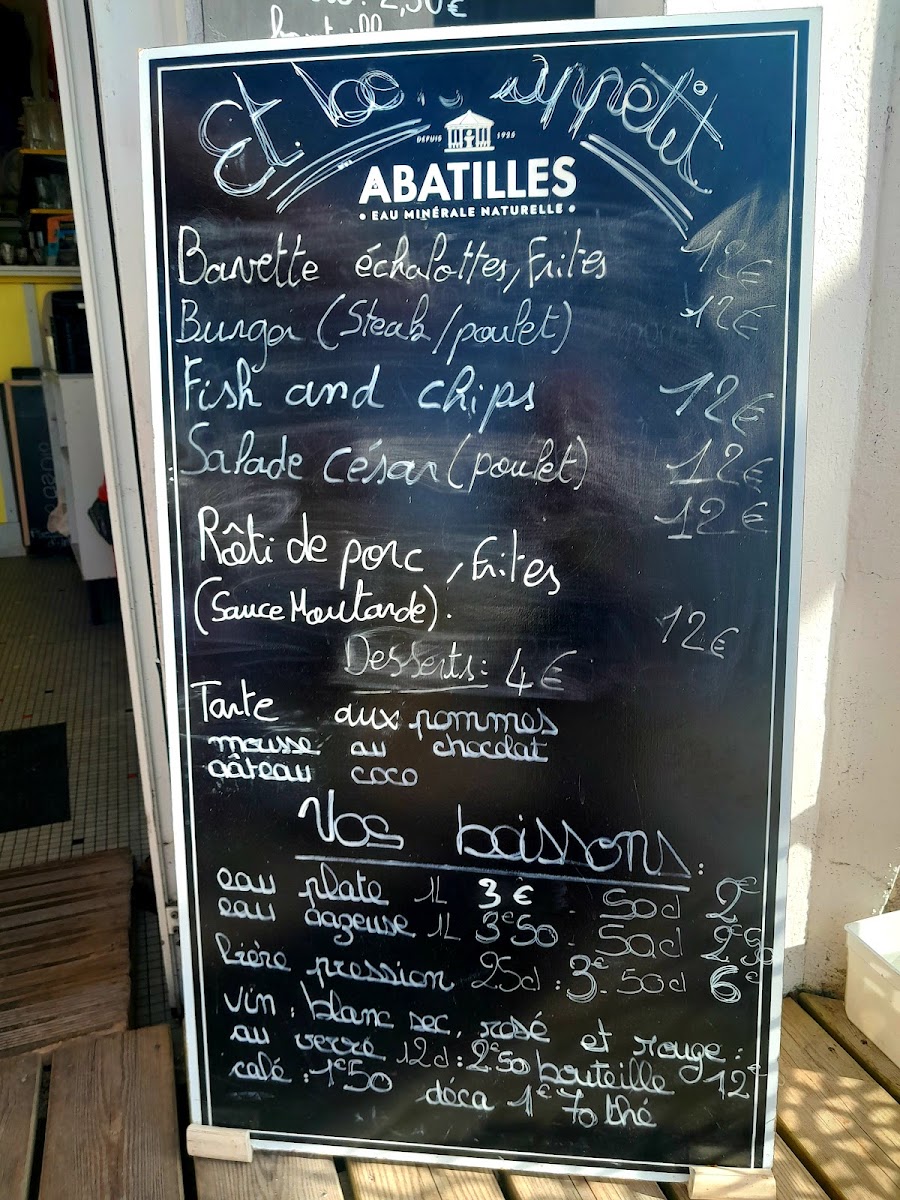 Et bon appetit
DEPUIS 1925
ABATILLES
• EAU MINÉRALE NATURELLE •
Bavette échalottes, frites 12€
Burger (Steak/poulet) 12€
Fish and chips 12€
Salade césar (poulet) 12€
12€
Rôti de porc, frites
(Sauce Moutarde). 12€
Desserts: 4€
Tarte aux pommes
mousse au chocolat
gâteau coco
Vos boissons:
eau plate 1L 3€ - 50cl 2€
eau gazeuse 1L 3€50 - 50cl 2€50
bière pression 25cl: 3€ - 50cl 6€
vin: blanc sec, rosé et rouge:
au verre 12cl: 2€50 bouteille 12€
café: 1€50 déca 1€70 thé